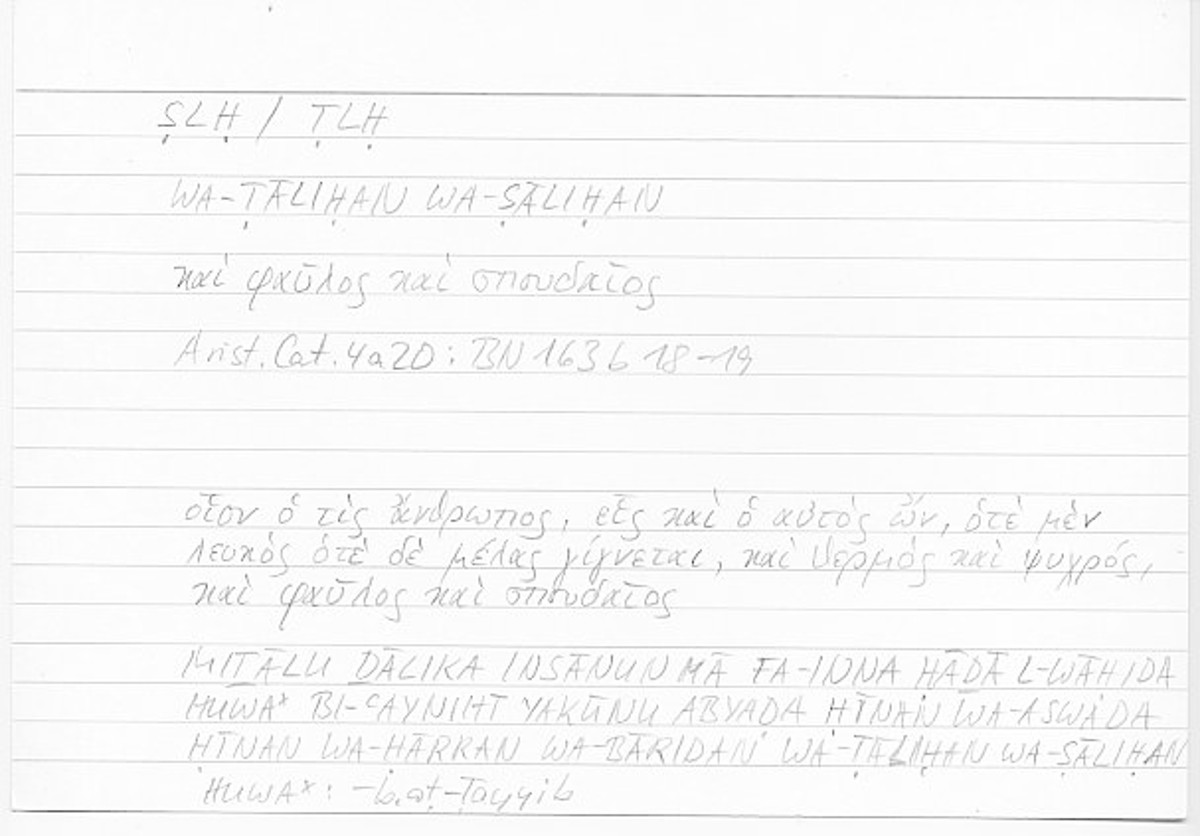 ṢLḤ / ṬLḤ
WA-ṬĀLIḤAN WA-ṢĀLIḤAN
καὶ φαῦλος καὶ σπουδαῖος
Arist. Cat. 4a20: BN 163b 18-19
οἷον ὁ τὶς ἄνθρωπος, εἷς καὶ ὁ αὐτὸς ὤν, ὁτὲ μὲν
λευκὸς ὁτὲ δὲ μέλας γίγνεται, καὶ θερμὸς καὶ ψυχρός,
καὶ φαῦλος καὶ σπουδαῖος
MIṮĀLU ḎĀLIKA INSĀNUN MĀ FA-INNA HĀḎĀ L-WĀḤIDA
HUWA* BI-ʿAYNIHĪ YAKŪNU ABYAḌA ḤĪNAN WA-ASWADA
ḤĪNAN WA-ḤĀRRAN WA-BĀRIDAN WA-ṬĀLIḤAN WA-ṢĀLIḤAN
HUWA*: – b. aṭ-Ṭayyib